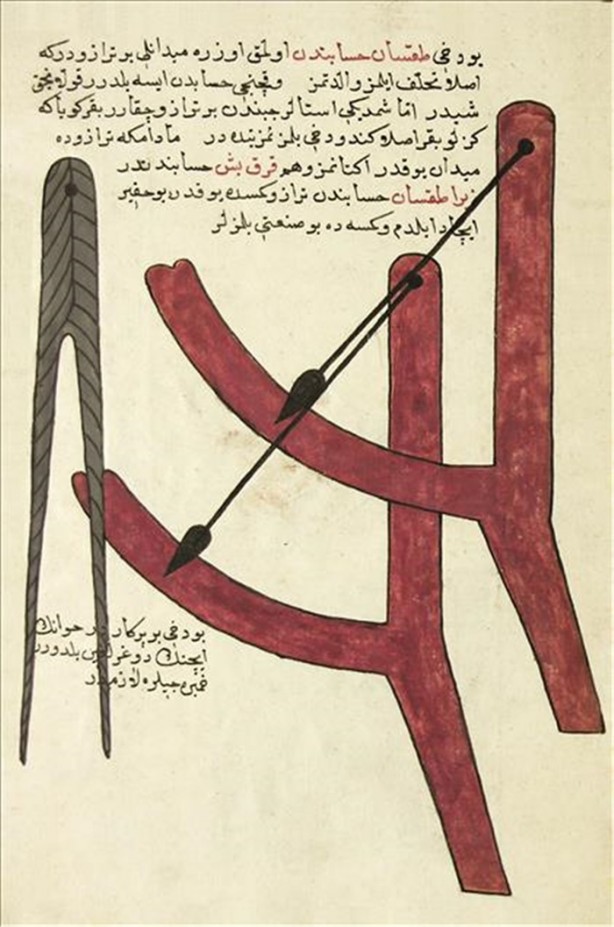 بو دخی طقسان حسابندن اولمق اوزره میدانلی بر ترازودر که
اصلا تخلف ایلمز والدتمز وقچنجی حسابدن ایسه بلدرر قوله یختی
شیدر اما شمدیکی استالر جبندن بر ترازو چقارر بقر کویا که
کزلو بقر اصلا کندو دخی بلمز نمزننده در مادامکه ترازوده
میدان یوقدر اکا نمز وهم قرق بش حسابندندر
زیرا طقسان حسابندن ترازو کسده یوقدر بو حقیر
ایجاد ایلدم وکسه ده بو صنعتی بلمزلر
بو دخی بر پرکاردر حوانك
ایچنك دوغرلغین بلدورر
خمبره جیلره لازمدر